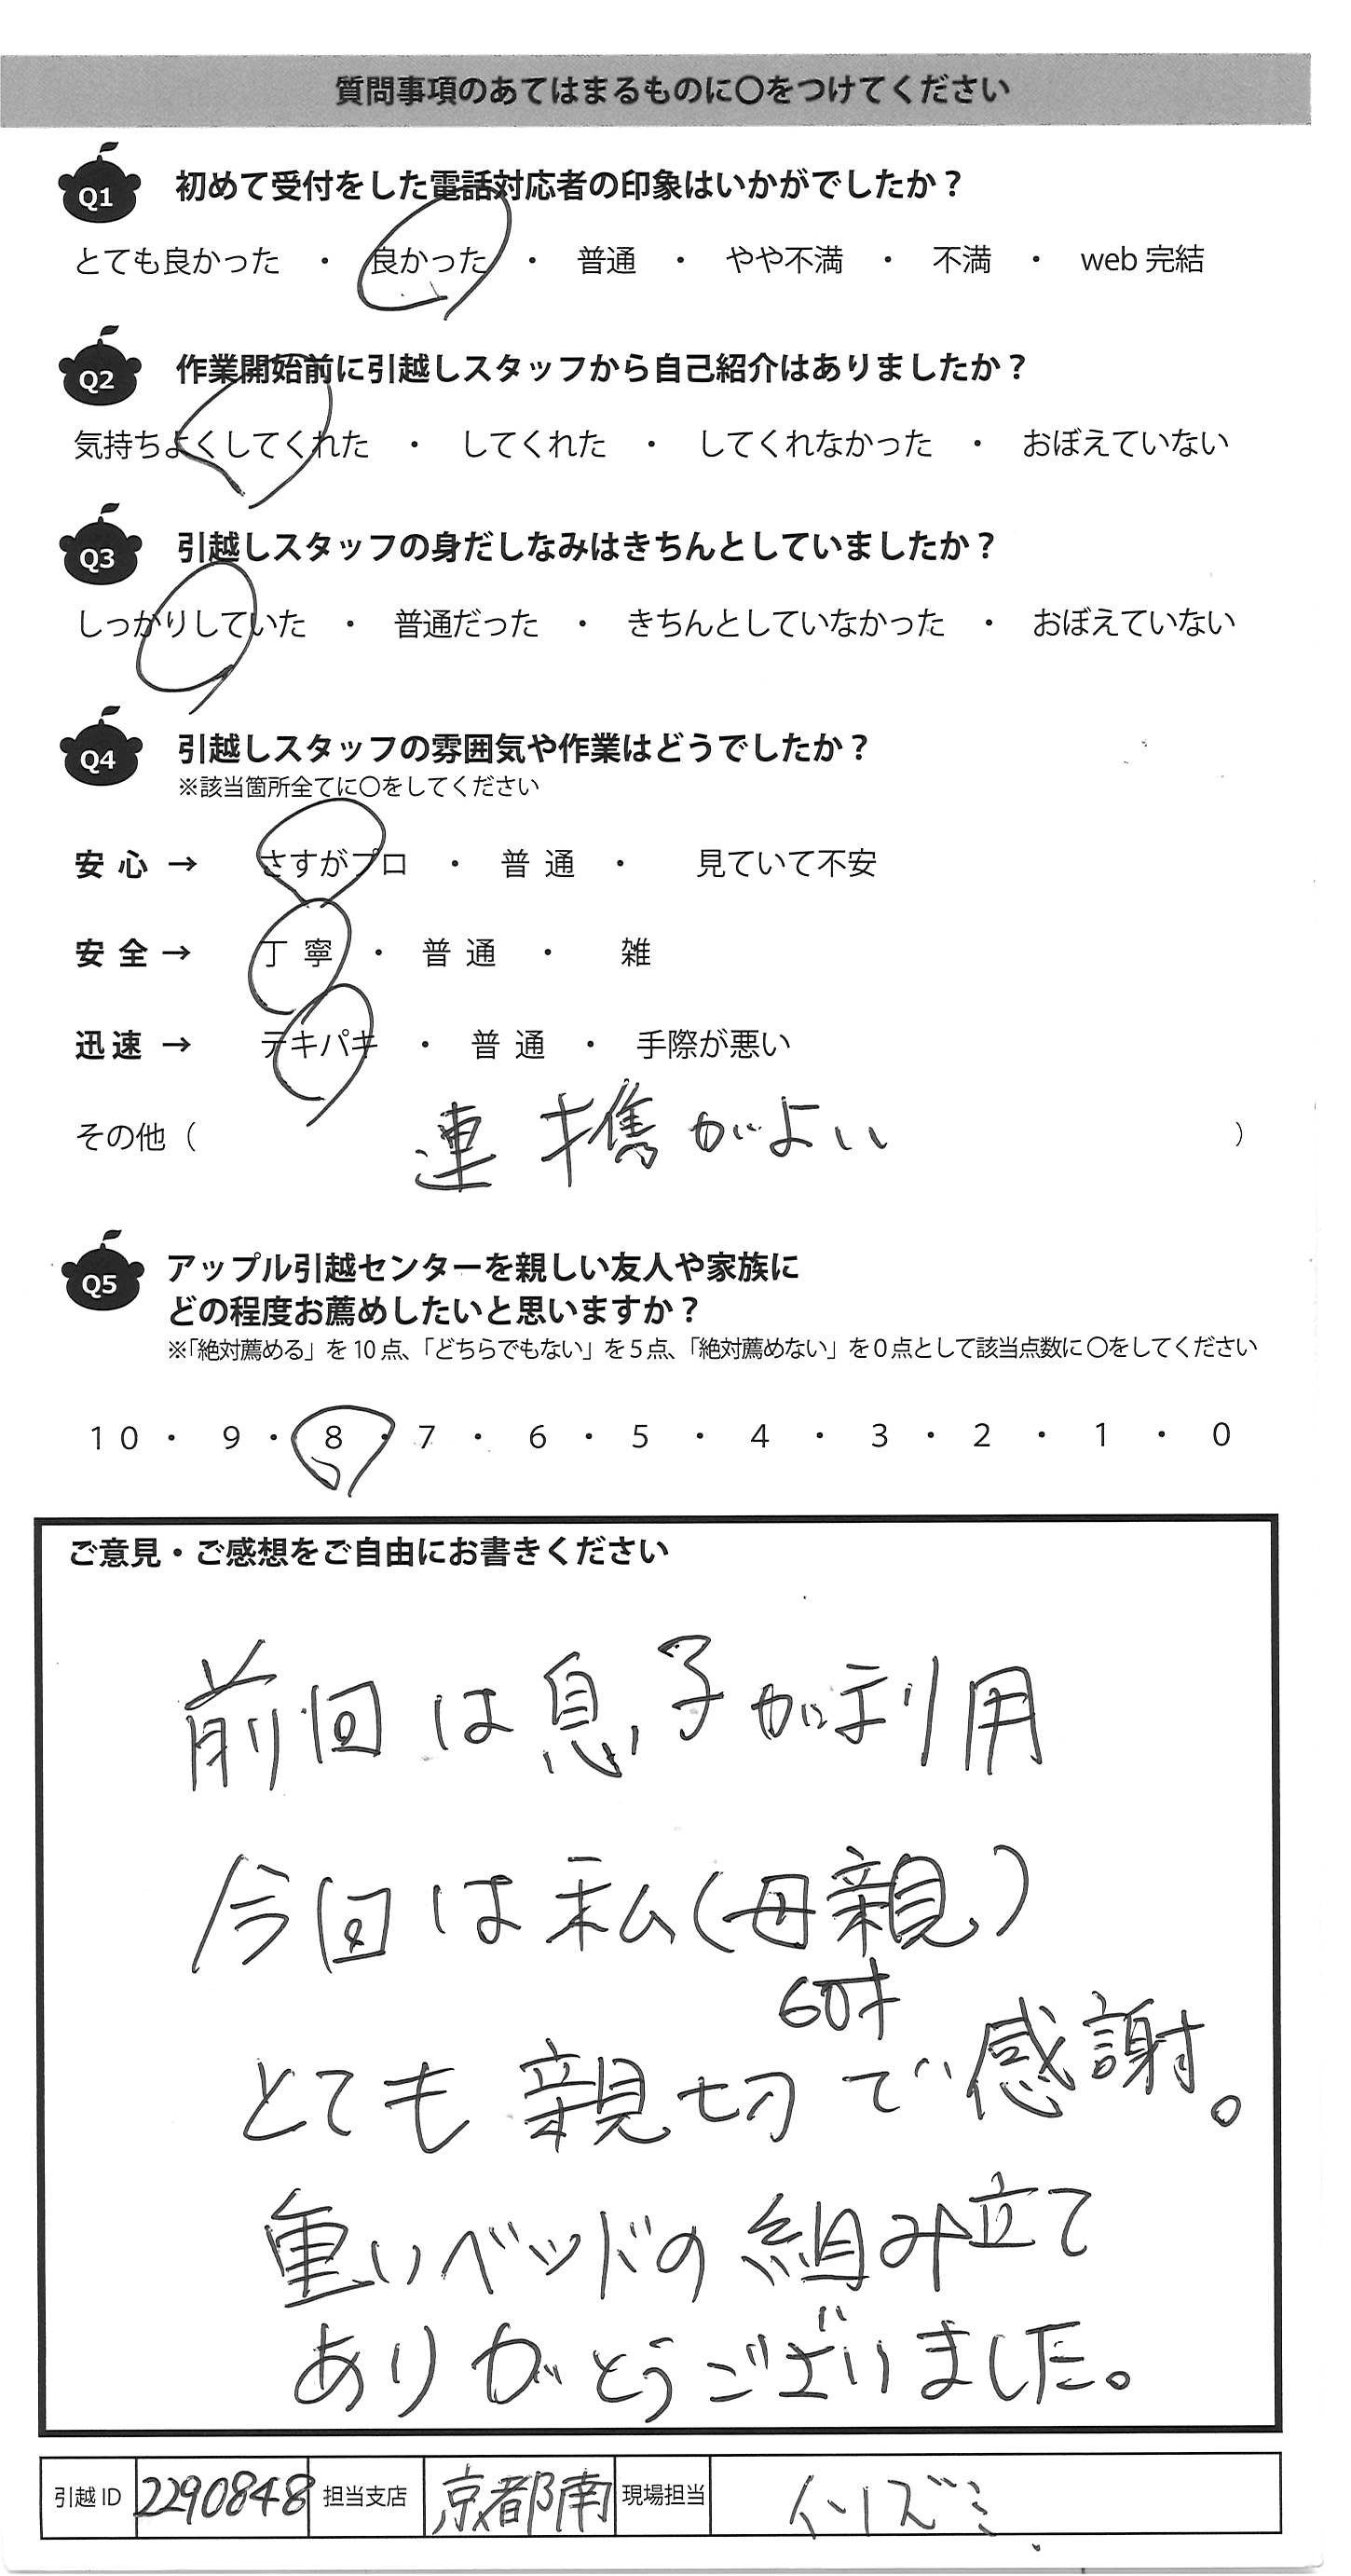 質問事項のあてはまるものに〇をつけてください
Q1 初めて受付をした電話対応者の印象はいかがでしたか？
とても良かった ・ 良かった ・ 普通 ・ やや不満 ・ 不満 ・ web完結
Q2 作業開始前に引越しスタッフから自己紹介はありましたか？
気持ちよくしてくれた ・ してくれた ・ してくれなかった ・ おぼえていない
Q3 引越しスタッフの身だしなみはきちんとしていましたか？
しっかりしていた ・ 普通だった ・ きちんとしていなかった ・ おぼえていない
Q4 引越しスタッフの雰囲気や作業はどうでしたか？
※該当箇所全てに〇をしてください
安心 → さすがプロ ・ 普通 ・ 見ていて不安
安全 → 丁寧 ・ 普通 ・ 雑
迅速 → テキパキ ・ 普通 ・ 手際が悪い
その他（ 連携がよい ）
Q5 アップル引越センターを親しい友人や家族に
どの程度お薦めしたいと思いますか？
※「絶対薦める」を10点、「どちらでもない」を5点、「絶対薦めない」を0点として該当点数に〇をしてください
10 ・ 9 ・ 8 ・ 7 ・ 6 ・ 5 ・ 4 ・ 3 ・ 2 ・ 1 ・ 0
ご意見・ご感想をご自由にお書きください
前回は息子が利用
今回は私(母親)
60才
とても親切で感謝。
重いベッドの組み立て
ありがとうございました。
引越ID 2290848 担当支店 京都南 現場担当